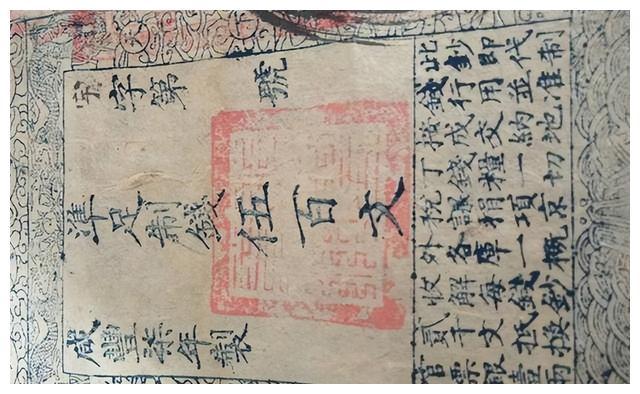 字第號
準足制錢伍百文
咸豐柒年製
此鈔即代制
錢行用並准
按成交納地
丁錢糧一切
稅課捐項京
外各庫一概
收解每錢鈔
貳千文抵換
官票銀壹兩